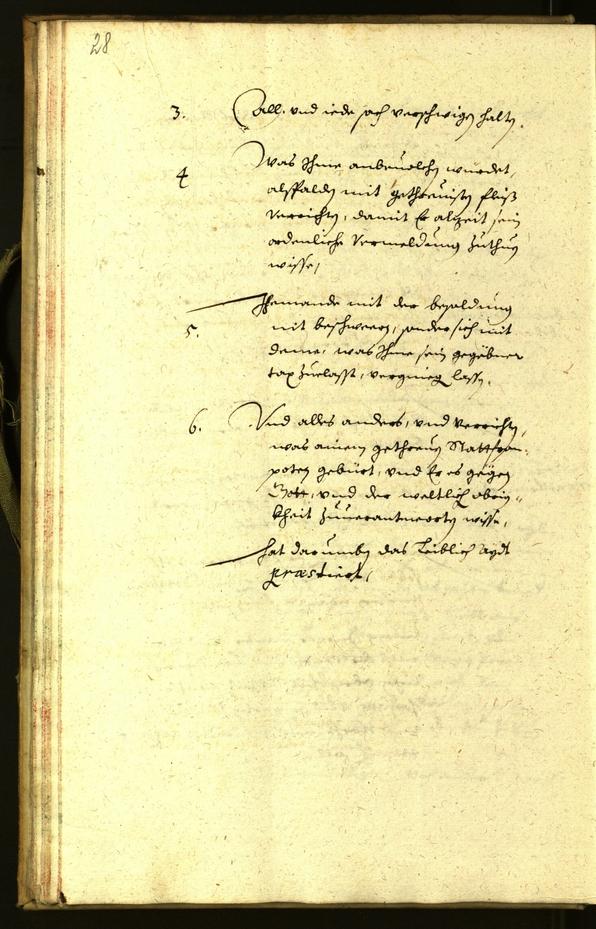 28
3. All. vnd iede sach verschwigen halten.
4 Was Ihme anbeuolchen wurdet,
alspalden mit gethreuisten fleiß
verrichten, damit Er alzeit sein
ordenliche vermeldung zuthun
wisse,
5. Jemande mit der besoldung
nit beschweren, sonder sich mit
deme, was Ihme sein gegebner
tax zuelasst, vergnieg lassen.
6. Vnd alles anders, vnd verrichten,
was ainem gethreuen Statt
poten gebürt, vnd Er es gegen
Gott, vnd der weltlich obrig„
kheit zuuerantworten wisse,
hat darumben das Leiblich Aydt
præstiert,